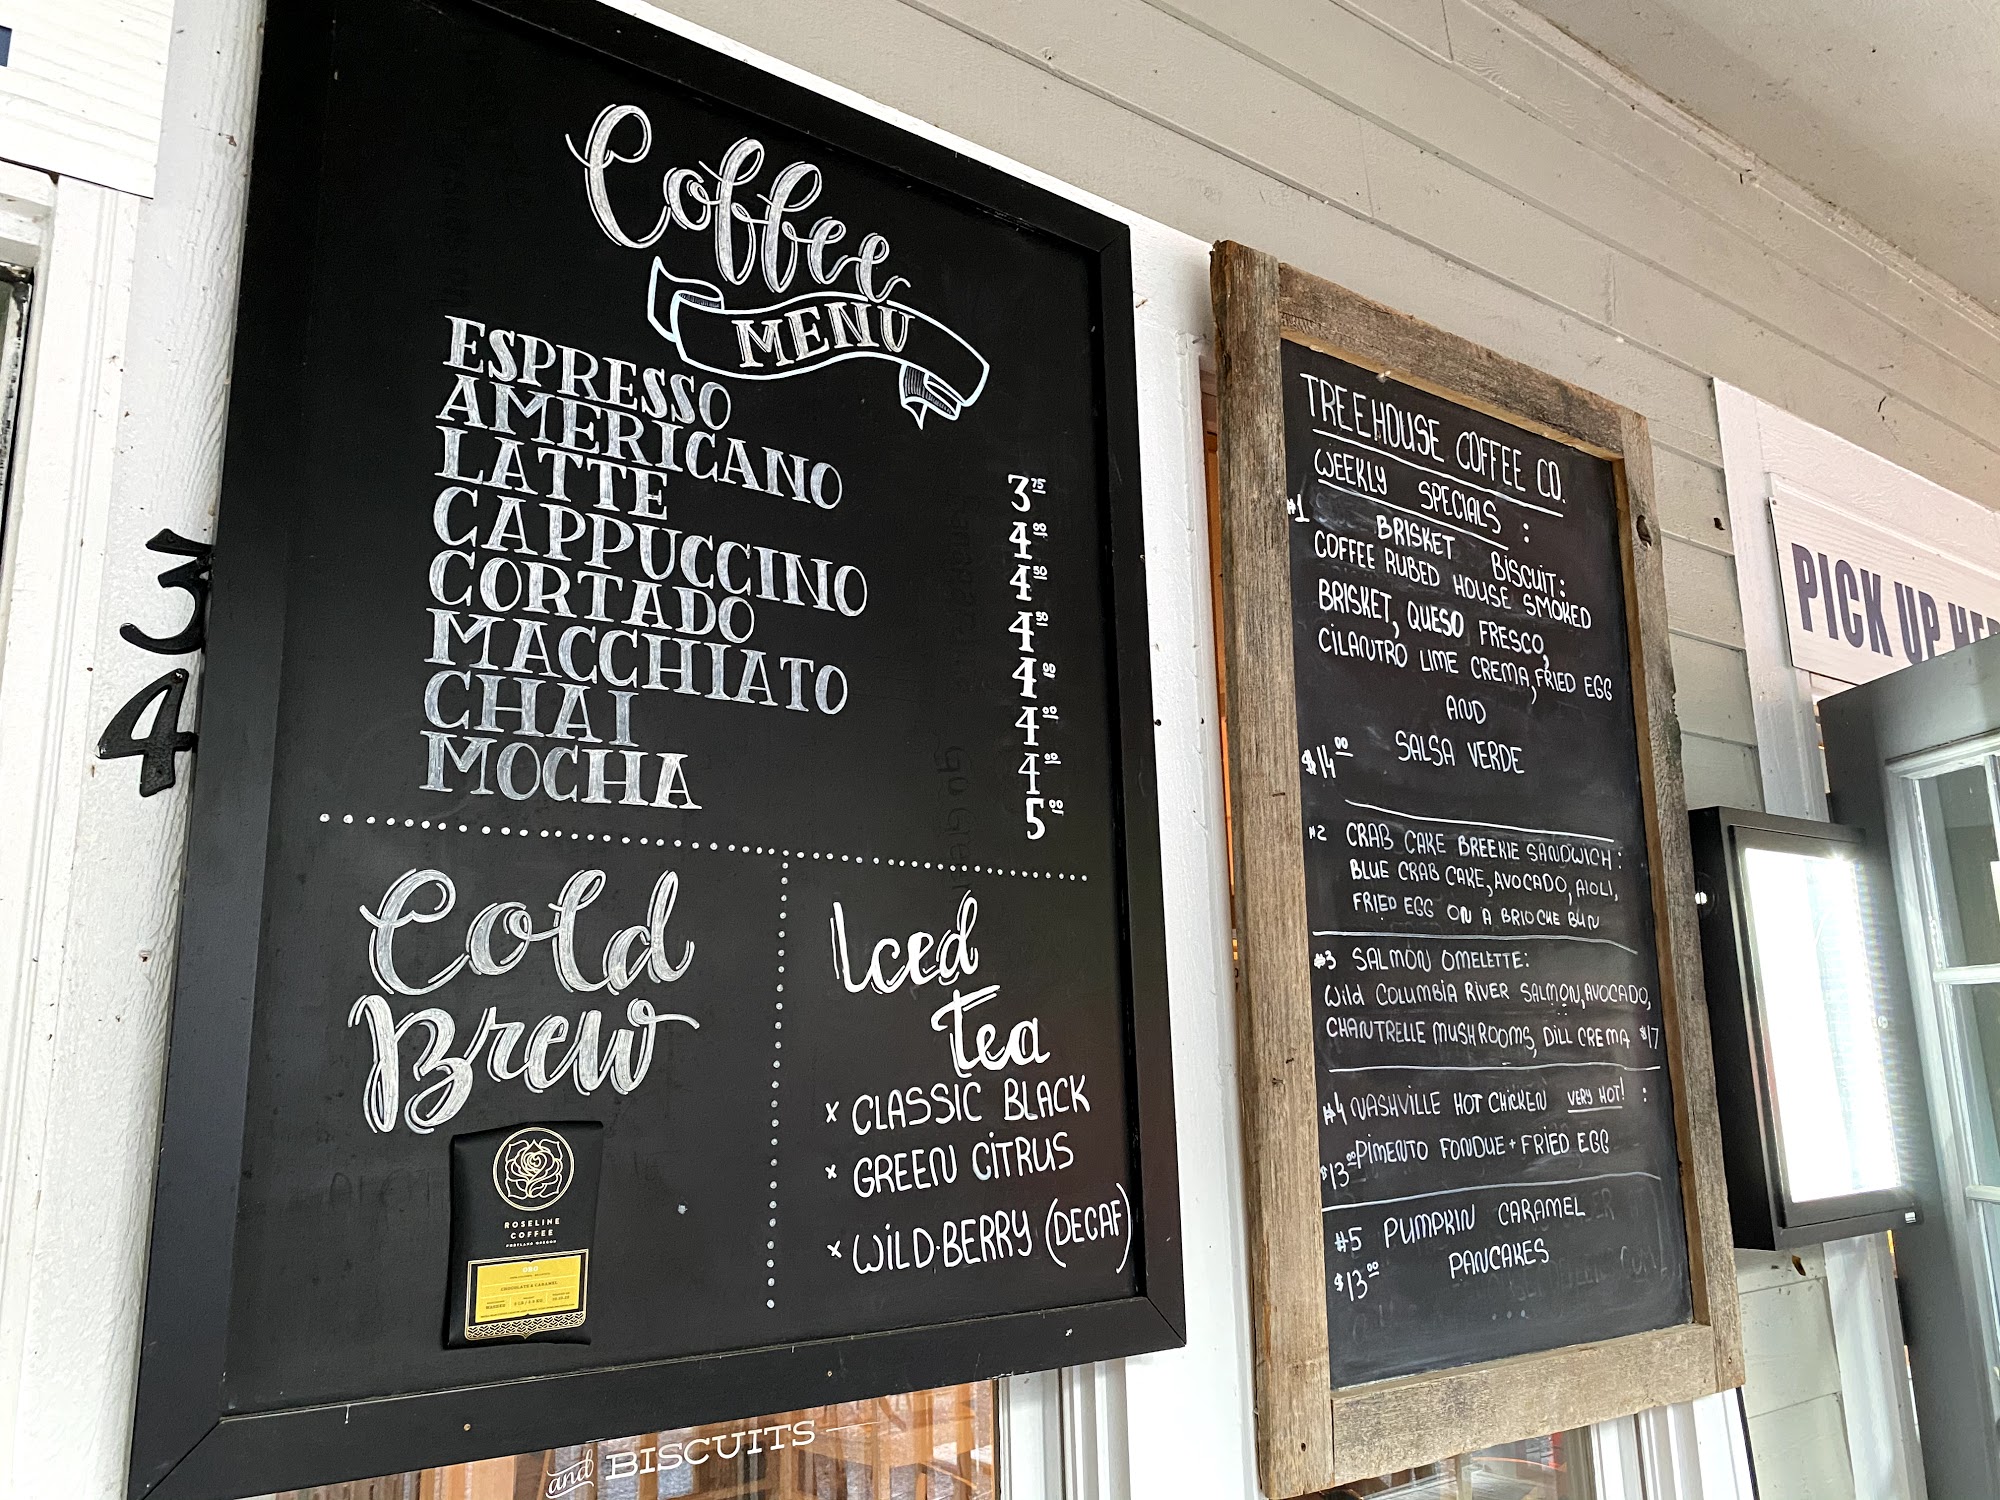 3
4
Coffee
MENU
ESPRESSO 3 75
AMERICANO 4 00
LATTE 4 50
CAPPUCCINO 4 50
CORTADO 4 00
MACCHIATO 4 00
CHAI 4 00
MOCHA 5 00
Cold
Brew
ROSELINE
COFFEE
PORTLAND OREGON
ORO
CHOCOLATE & CARAMEL
WASHED
Iced
Tea
x CLASSIC BLACK
x GREEN CITRUS
x WILD·BERRY (DECAF)
and BISCUITS
TREEHOUSE COFFEE CO.
WEEKLY SPECIALS :
#1 BRISKET BISCUIT:
COFFEE RUBED HOUSE SMOKED
BRISKET, QUESO FRESCO,
CILANTRO LIME CREMA, FRIED EGG
AND
$14 00 SALSA VERDE
#2 CRAB CAKE BREEKIE SANDWICH:
BLUE CRAB CAKE, AVOCADO, AIOLI,
FRIED EGG ON A BRIOCHE BUN
#3 SALMON OMELETTE:
Wild COLUMBIA RIVER SALMON, AVOCADO,
CHANTRELLE MUSHROOMS, DILL CREMA $17
#4 NASHVILLE HOT CHICKEN VERY HOT! :
$13 00 PIMENTO FONDUE + FRIED EGG
#5 PUMPKIN CARAMEL
$13 00 PANCAKES
PICK UP